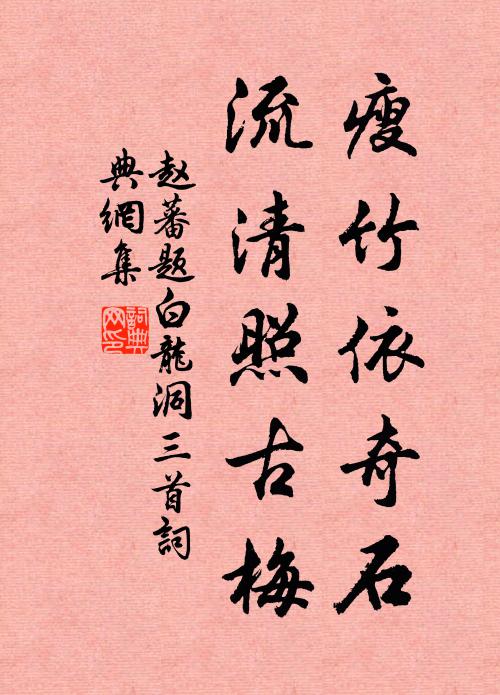 瘦竹依奇石
流清照古梅
赵蕃题白龍洞三首詞
典網集
詞典
网印